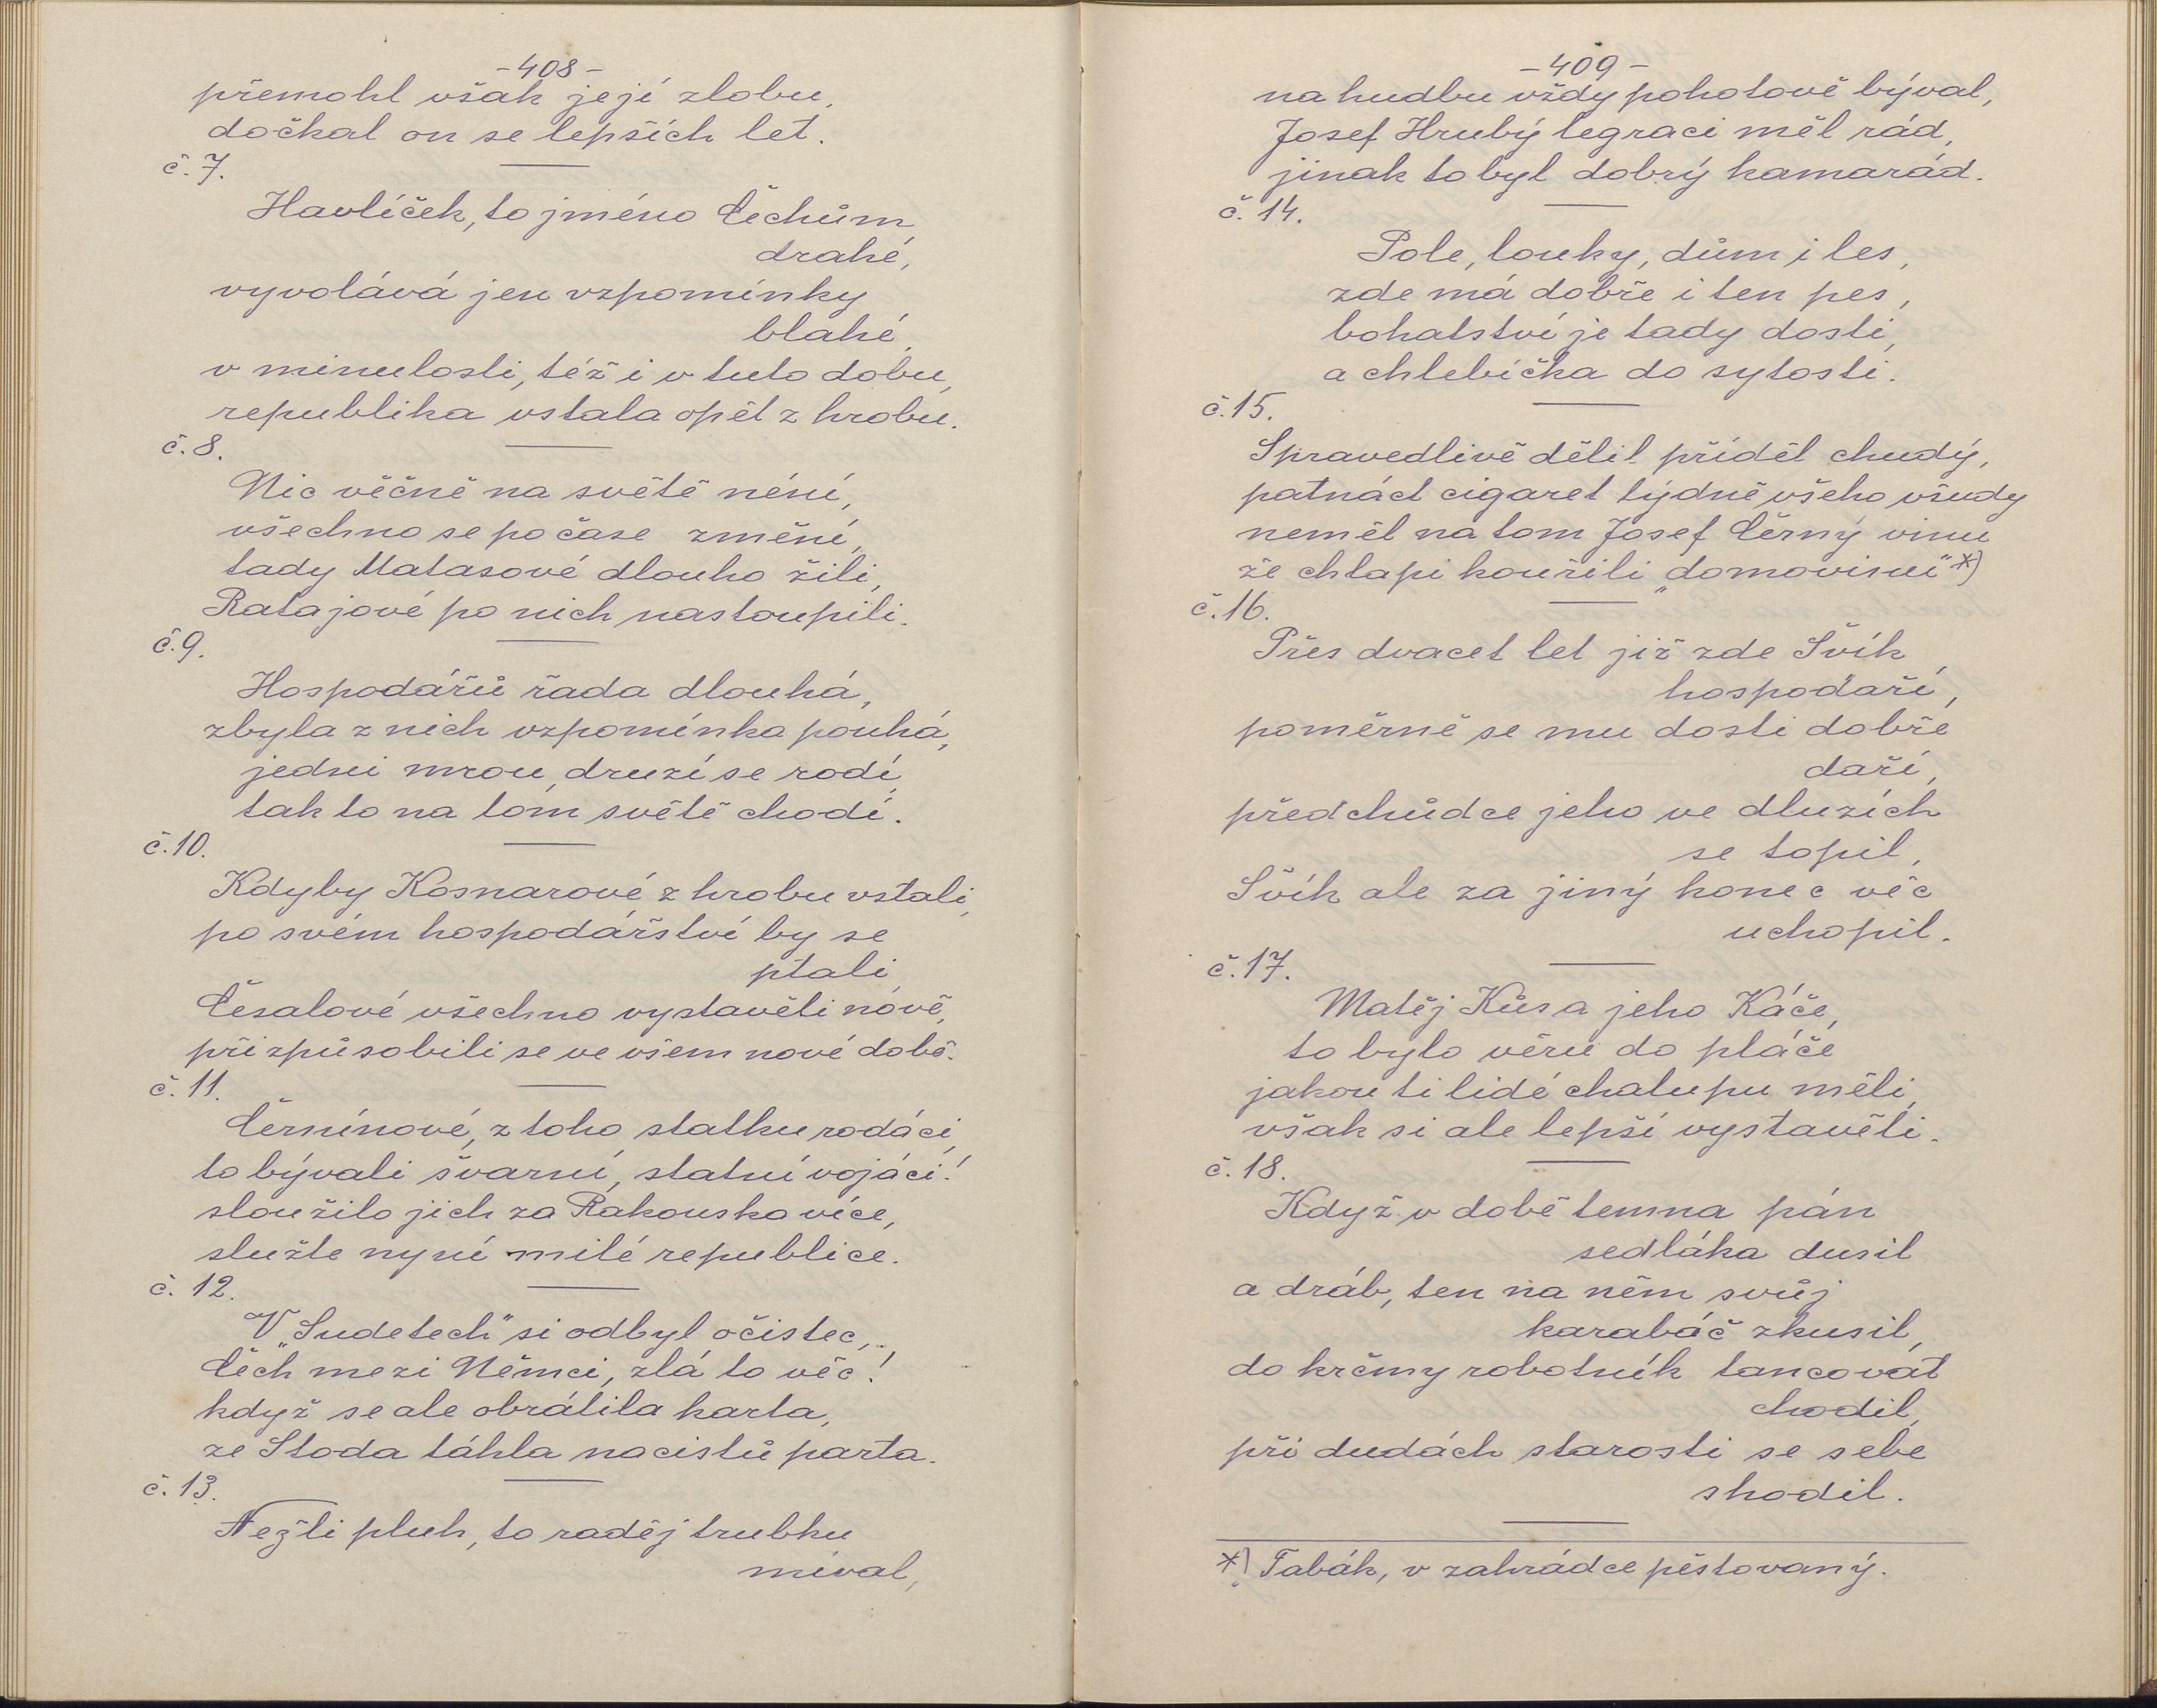 -408-
přemohl však její zlobu,
dočkal on se lepších let.
č.7.
Havlíček, to jméno Čechům
drahé,
vyvolává jen vzpomínky
blahé,
v minulosti, též i v tuto dobu,
republika vstala opět z hrobu.
č.8.
Nic věčně na světě není,
všechno se po čase změní,
tady Matasové dlouho žili,
Ratajové po nich nastoupili.
č.9.
Hospodářů řada dlouhá,
zbyla z nich vzpomínka pouhá,
jedni mrou, druzí se rodí,
tak to na tom světě chodí.
č.10.
Kdyby Kosnarové z hrobu vstali,
po svém hospodářství by se
ptali,
Česalové všechno vystavěli nově,
přizpůsobili se ve všem nové době.
č.11.
Černínové, z toho statku rodáci,
to bývali švarní, statní vojáci!
sloužilo jich za Rakouska více,
služte nyní milé republice.
č. 12.
V „Sudetech" si odbyl očistec,
Čech mezi Němci, zlá to věc!
když se ale obrátila karta,
ze Stoda táhla nacistů parta.
č. 13.
Nežli pluh, to raděj trubku
míval,
-409-
na hudbu vždy pohotově býval,
Josef Hrubý legraci měl rád,
jinak to byl dobrý kamarád.
č. 14.
Pole, louky, dům i les,
zde má dobře i ten pes,
bohatství je tady dosti,
a chlebíčka do sytosti.
č.15.
Spravedlivě dělil příděl chudý,
patnáct cigaret týdně všeho všudy
neměl na tom Josef Černý vinu
že chlapi kouřili „domovinu" *)
č.16.
Přes dvacet let již zde Švík
hospodaří,
poměrně se mu dosti dobře
daří,
předchůdce jeho ve dluzích
se topil,
Švík ale za jiný konec věc
uchopil.
č.17.
Matěj Kůs a jeho Káče,
to bylo věru do pláče
jakou ti lidé chalupu měli,
však si ale lepší vystavěli.
č. 18.
Když v době temna pán
sedláka dusil
a dráb, ten na něm svůj
karabáč zkusil,
do krčmy robotník tancovat
chodil,
při dudách starosti se sebe
shodil.
*) Tabák, v zahrádce pěstovaný.